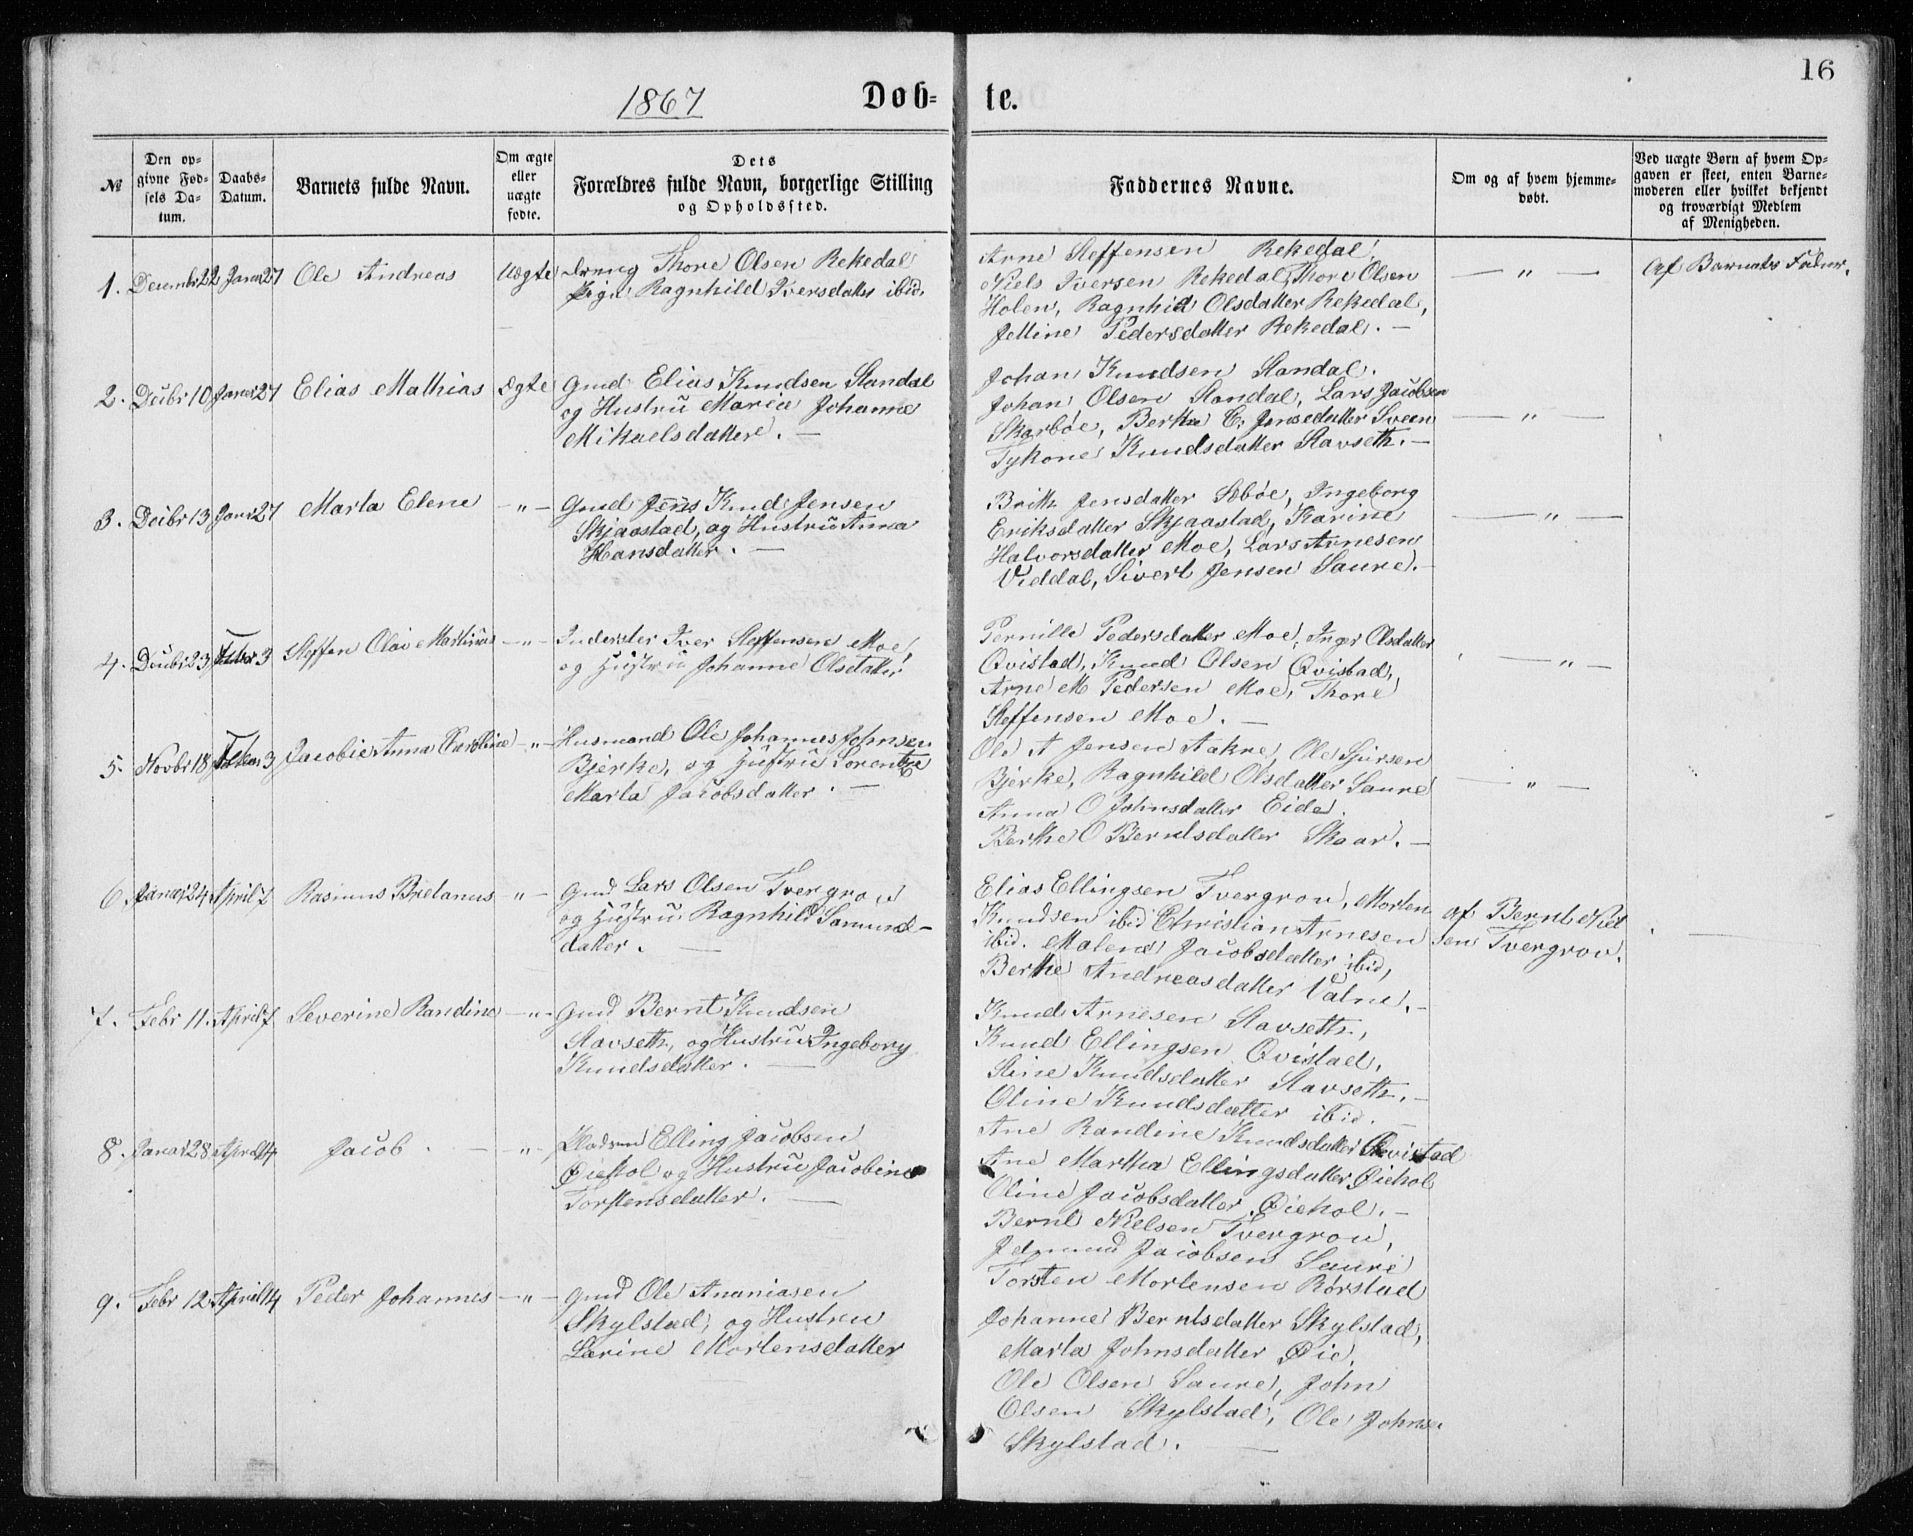 16
1867 Døb- te.
№
Den op-
givne Fød-
sels Da-
tum.
Daabs-
Datum.
Barnets fulde Navn.
Om ægte
eller
uægte
fødte.
Dets
Forældres fulde Navn, borgerlige Stilling
og Opholdssted.
Faddernes Navne.
Om og af hvem hjemme-
døbt.
Ved uægte Børn af hvem Op-
gaven er skeet, enten Barne-
moderen eller hvilket bekjendt
og troværdigt Medlem
af Menigheden.
1. Decembr 22 Januar 27 Ole Andreas Uægte Dreng Thore Olsen Rekedal
Pige Ragnhild Iversdatter ibid.
Arne Steffensen Rekedal,
Niels Iversen Rekedal, Thore Olsen
Holen, Ragnhild Olsdatter Rekedal,
Jettine Pedersdatter Rekedal. —
— " —
Af Barnets Fader.
2. Decbr 10 Januar 27 Elias Mathias Ægte Gmd Elias Knudsen Standal
og Hustru Maria Johanna
Mikaelsdatter. —
Johan Knudsen Standal.
Johan Olsen Standal, Lars Jacobsen
Skarbøe, Berthe E. Jensedatter Sveen
Tykone Knudsdatter Stavseth. —
— " —
3. Decbr 13 Januar 27 Marta Elene — " — Gmd Jens Knud Jensen
Skjaastad, og Hustru Anna
Hansdatter. —
Brith Jensdatter Sæbøe, Ingeborg
Eriksdatter Skjaastad, Karine
Halvorsdatter Moe, Lars Arnesen
Viddal, Sivert Jensen Saure. —
— " —
4. Decbr 23 Febr 3 Steffen Olai Martinus — " — Inderster Iver Steffensen Moe,
og Hustru Johanne Olsdatter
Pernille Pedersdatter Moe, Inger Olsdatter
Qvistad, Knud Olsen Qvistad,
Arne M Pedersen Moe, Thore
Steffensen Moe. —
— " —
5. Novbr 18 Febr 3 Jacobie Anna Karoline — " — Husmand Ole Johannes Johnsen
Bjerke, og Hustru Sorentze
Marta Jacobsdatter. —
Ole A Jensen Aakre, Ole Sjursen
Bjerke, Ragnhild Olsdatter Saure
Anna O Johnsdatter Eide.
Berthe O Berntsdatter Skaar. —
— " —
6. Januar 24 April 7 Rasmus Bretanus — " — Gmd Lars Olsen Tvergrov
og Hustru Ragnhild Samund-
datter. —
Elias Ellingsen Tvergrov, Morten
Knudsen ibid Christian Arnesen
ibid. Malene Jacobsdatter ibid,
Berthe Andreasdatter Vatne. —
af Bernt Niel
sen Tvergrov.
—
7. Febr 11. April 7 Severine Randine — " — Gmd Bernt Knudsen
Stavseth, og Hustru Ingeborg
Knudsdatter. —
Knud Arnesen Stavseth,
Knud Ellingsen Qvistad,
Stine Knudsdatter Stavseth. —
Oline Knudsdatter ibid. —
Ane Randine Knudsdatter Qvistad
8. Januar 28 April 14 Jacob. — " — Elling Jacobsen
Øiehol og Hustru Jacobine
Torstensdatter. —
Ane Martha Ellingsdatter Øiehol
Oline Jacobsdatter Øiehol. —
Bernt Nielsen Tvergrov,
Jacobsen Saure
Torsten Mortensen Rørstad
9. Febr 12 April 14 Peder Johannes — " — Gmd Ole Ananiasen
Skylstad, og Hustru
Larine Mortensdatter
Johanne Berntsdatter Skylstad,
Marta Johnsdatter Øie.
Ole Olsen Saure, John
Olsen Skylstad, Ole Johnsen
Skylstad. —